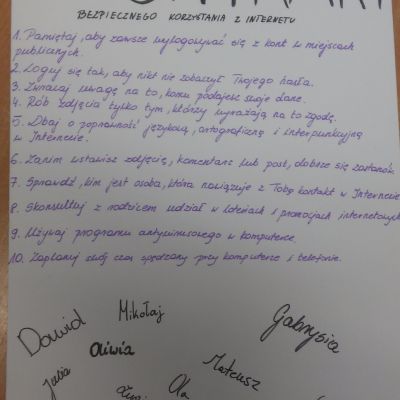 BEZPIECZNEGO KORZYSTANIA Z INTERNETU
1. Pamiętaj, aby zawsze wylogowywać się z kont w miejscach
publicznych.
2. Loguj się tak, aby nikt nie zobaczył Twojego hasła.
3. Zwracaj uwagę na to, komu podajesz swoje dane.
4. Rób zdjęcia tylko tym, którzy wyrażają na to zgodę.
5. Dbaj o poprawność językową, ortograficzną i interpunkcyjną
w Internecie.
6. Zanim wstawisz zdjęcie, komentarz lub post, dobrze się zastanów.
7. Sprawdź, kim jest osoba, która nawiązuje z Tobą kontakt w Internecie
8. Skonsultuj z rodzicem udział w loteriach i promocjach internetowych
9. Używaj programu antywirusowego w komputerze.
10. Zaplanuj swój czas spędzany przy komputerze i telefonie.
Dawid Mikołaj Gabrysia
Oliwia
Julia Ola Mateusz